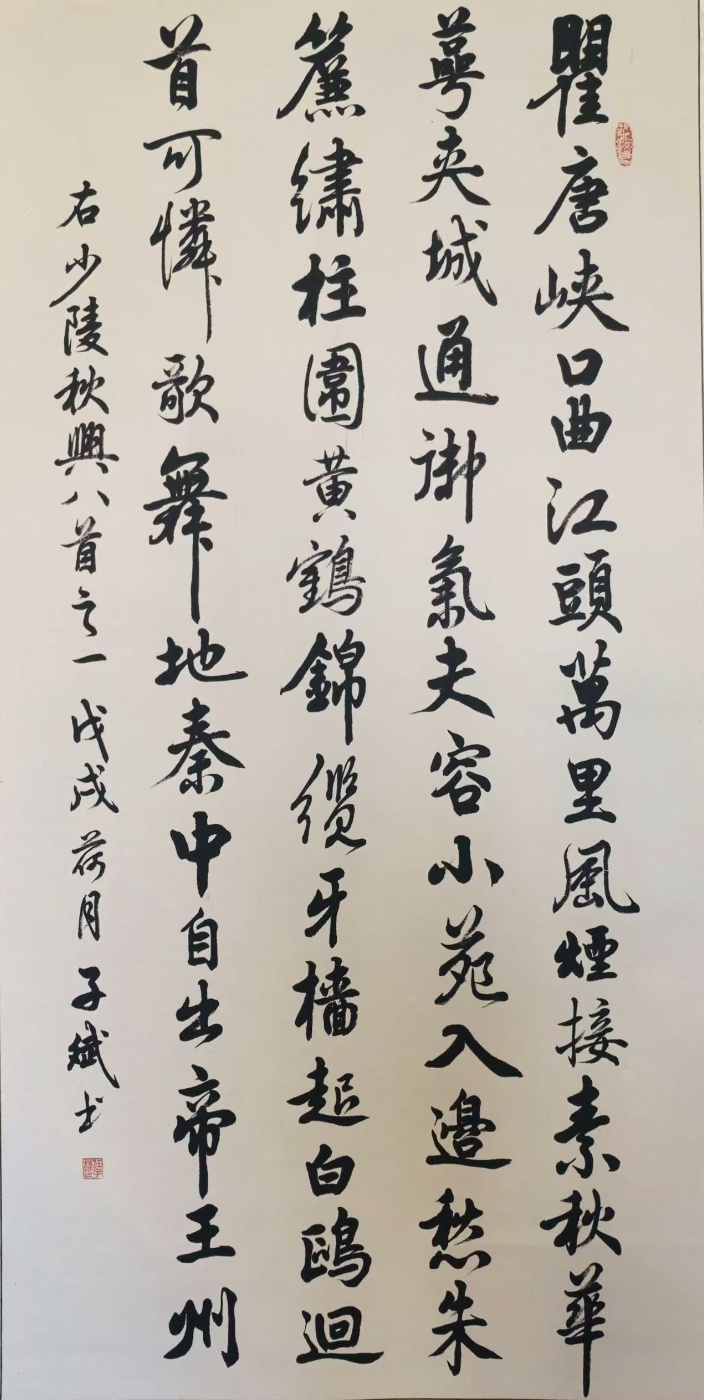 瞿唐峽口曲江頭萬里風煙接素秋華
萼夾城通御氣夫容小苑入邊愁朱
簾繡柱圍黃鶴錦纜牙檣起白鷗迴
首可憐歌舞地秦中自出帝王州
右少陵秋興八首之一 戊戌荷月 子斌書